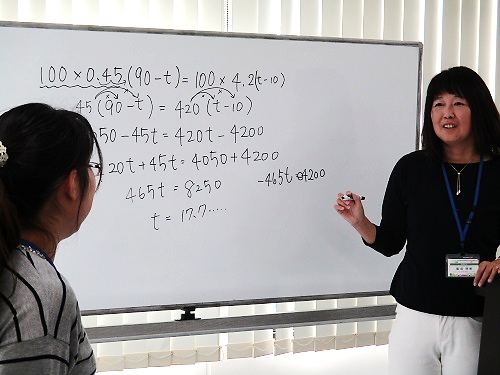 100 × 0.45 (90 - t) = 100 × 4.2 (t - 10)
45 (90 - t) = 420 (t - 10)
050 - 45t = 420t - 4200
20t + 45t = 4050 + 4200
465t = 8250
-465t = 4200
t = 17.7.....